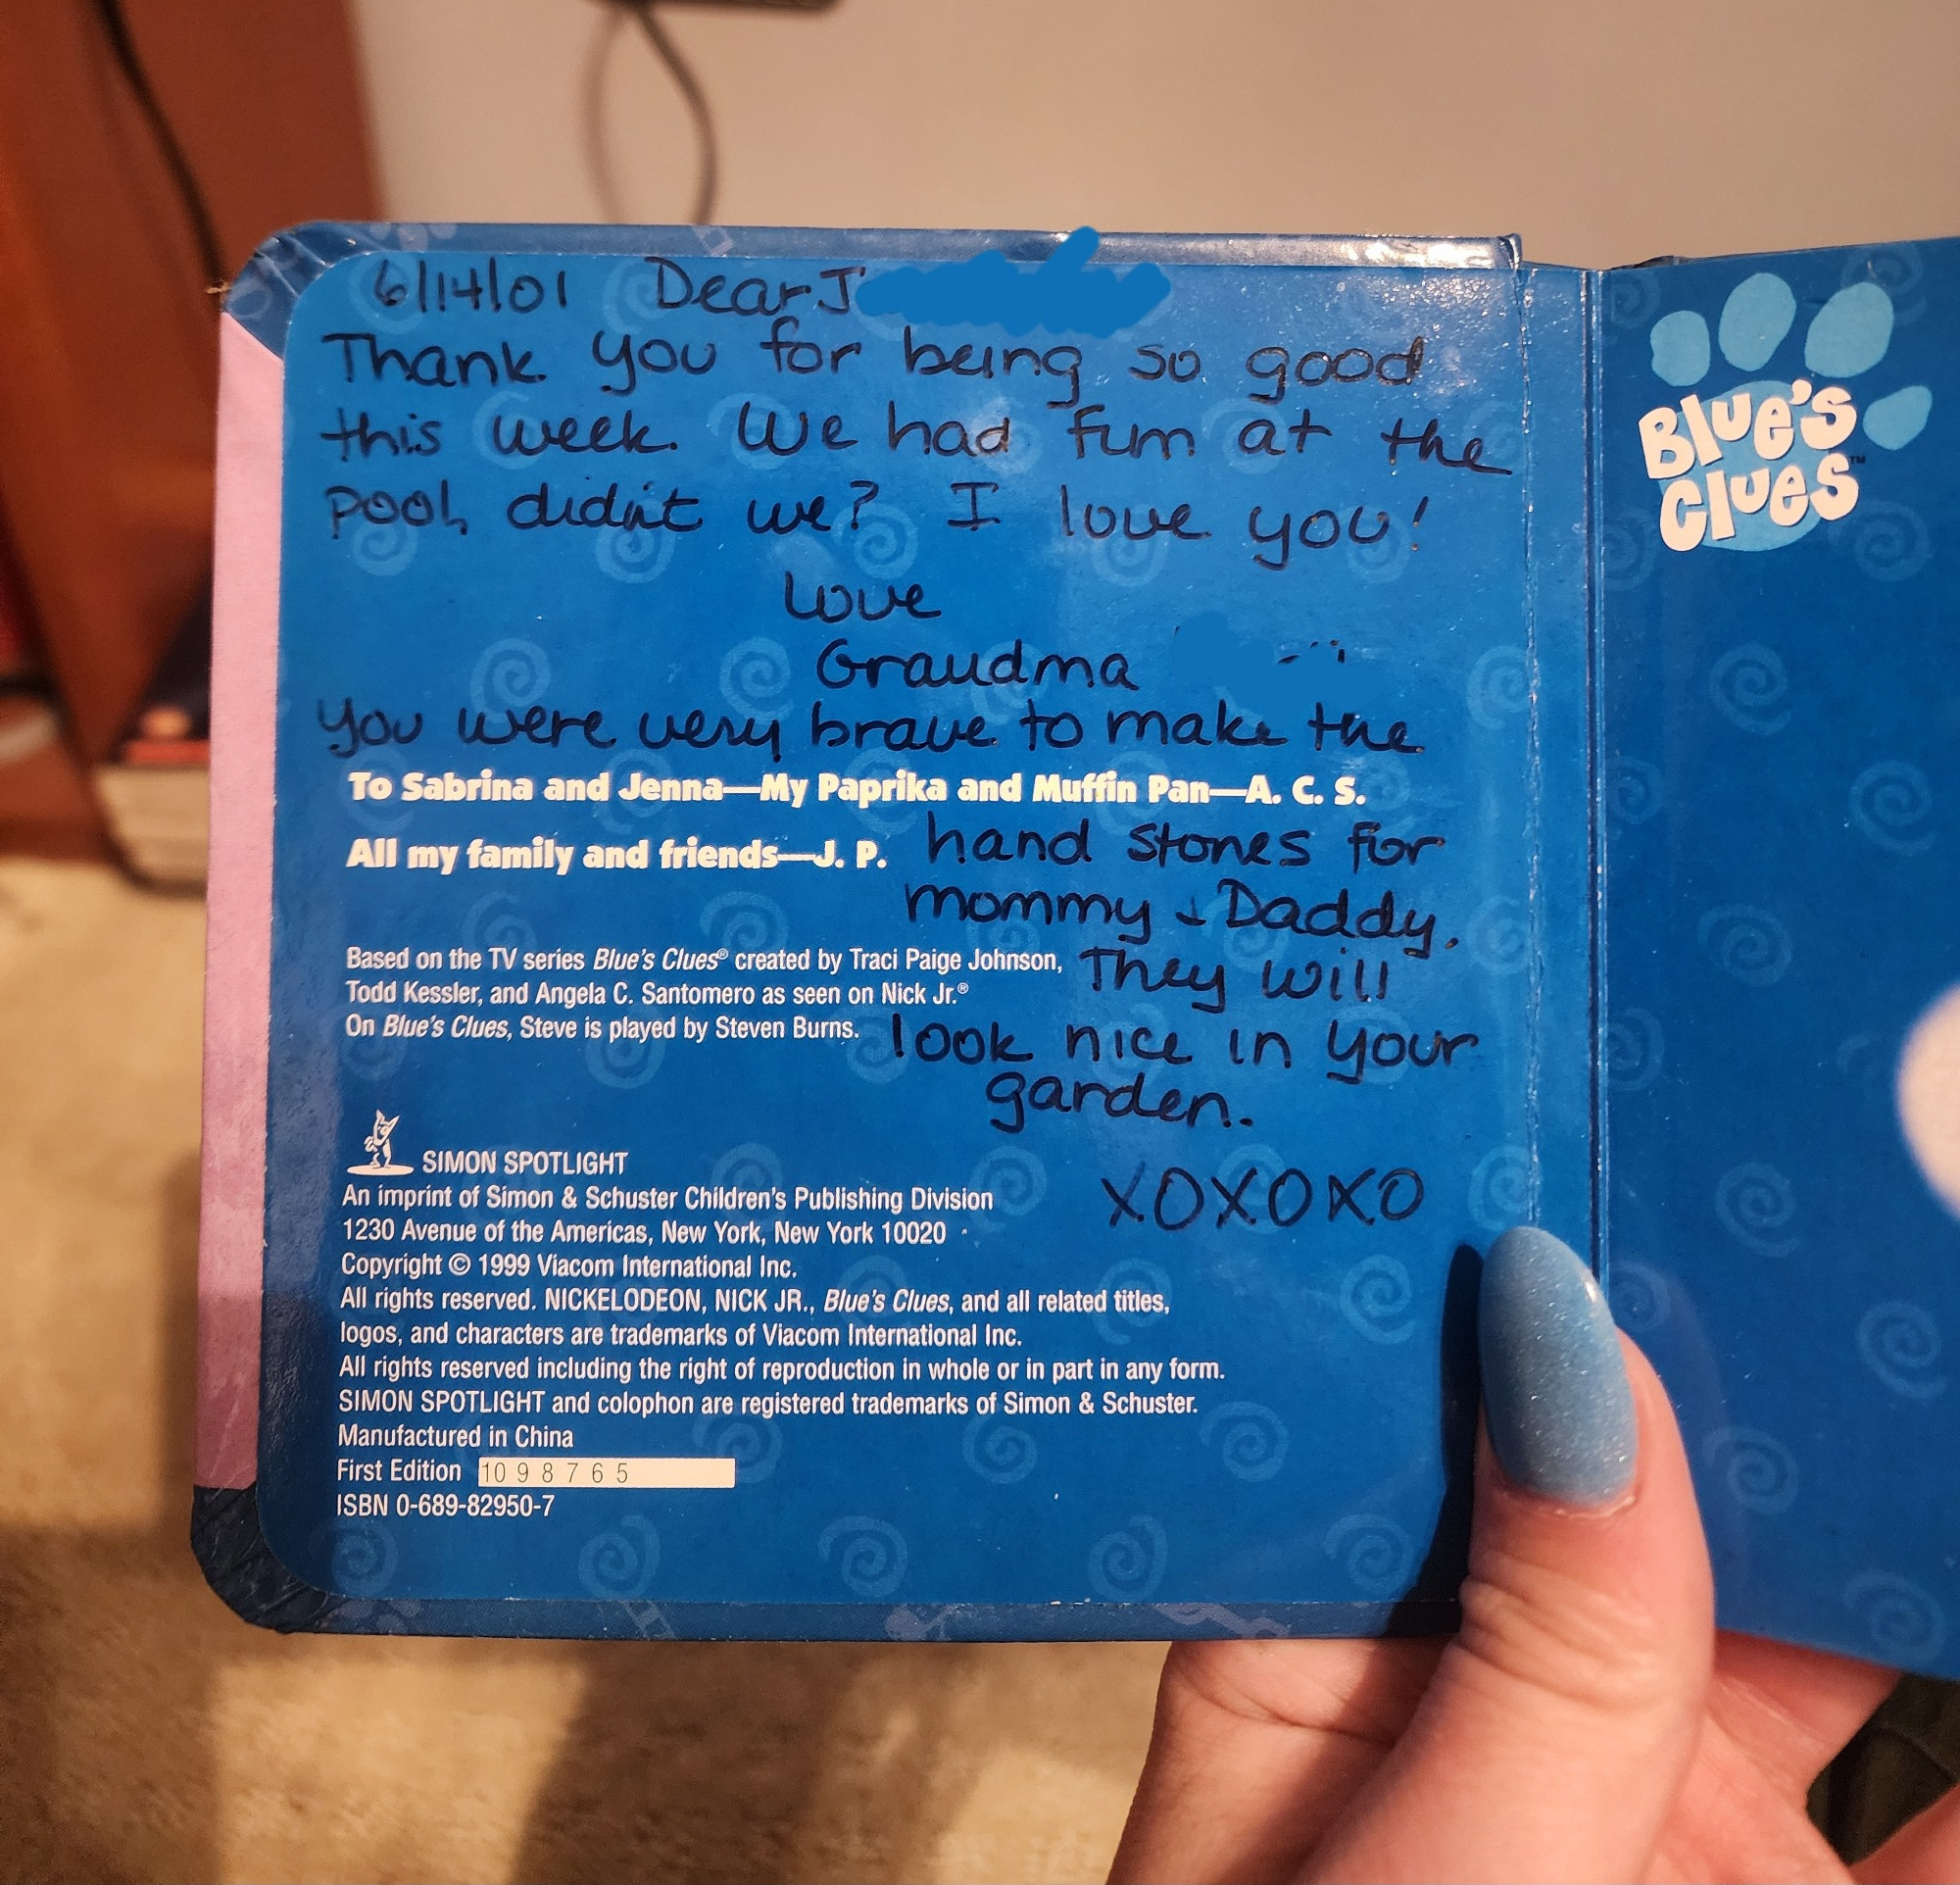 6/14/01 Dear J
Thank you for being so good
this week. We had fun at the
pool, didn't we? I love you!
Love
Grandma
You were very brave to make the
To Sabrina and Jenna—My Paprika and Muffin Pan—A. C. S.
All my family and friends—J. P.
hand stones for
mommy + Daddy.
They will
look nice in your
garden.
XOXOXO
Based on the TV series Blue's Clues® created by Traci Paige Johnson,
Todd Kessler, and Angela C. Santomero as seen on Nick Jr.®
On Blue's Clues, Steve is played by Steven Burns.
SIMON SPOTLIGHT
An imprint of Simon & Schuster Children's Publishing Division
1230 Avenue of the Americas, New York, New York 10020
Copyright © 1999 Viacom International Inc.
All rights reserved. NICKELODEON, NICK JR., Blue's Clues, and all related titles,
logos, and characters are trademarks of Viacom International Inc.
All rights reserved including the right of reproduction in whole or in part in any form.
SIMON SPOTLIGHT and colophon are registered trademarks of Simon & Schuster.
Manufactured in China
First Edition 10 9 8 7 6 5
ISBN 0-689-82950-7
Blue's
Clues™